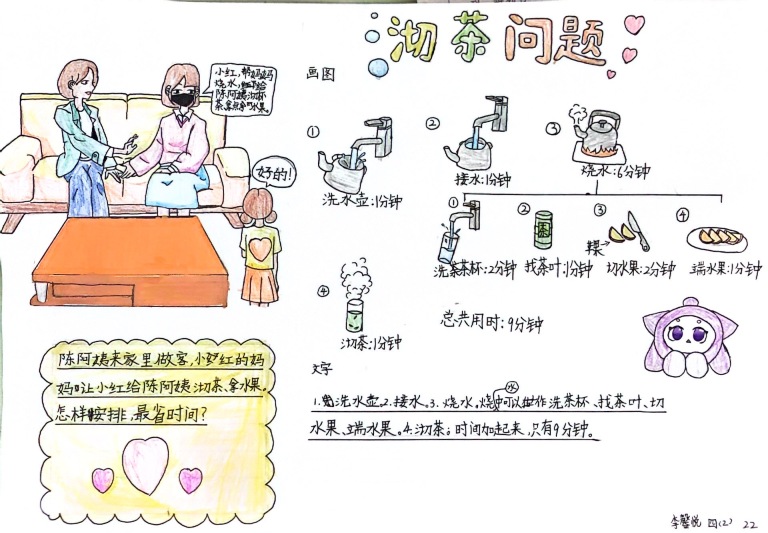 沏茶问题
小红,帮妈妈
烧水,给
陈阿姨沏杯
茶,拿点水果。
好的!
画图
①
洗水壶:1分钟
②
接水:1分钟
③
烧水:6分钟
①
洗茶杯:2分钟
②
找茶叶:1分钟
③
切水果:2分钟
④
端水果:1分钟
④
沏茶:1分钟
总共用时:9分钟
陈阿姨来家里做客,小红的妈
妈让小红给陈阿姨沏茶、拿水果。
怎样安排,最省时间?
文字
1.洗水壶。2.接水。3.烧水。烧水中可以做洗茶杯、找茶叶、切
水果、端水果。4.沏茶;时间加起来,只有9分钟。
李馨悦 四(2) 22